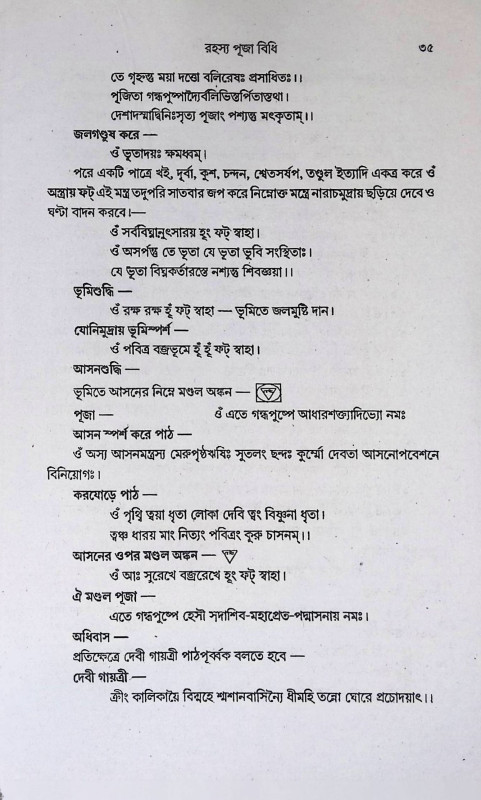 রহস্য পূজা বিধি ৩৫
তে গৃহ্নন্তু ময়া দত্তো বলিরেষঃ প্রসাধিতঃ।।
পূজিতা গন্ধপুষ্পাদ্যৈর্বলিভিস্তর্পিতাস্তথা।
দেশাদস্মাদ্বিনিঃসৃত্য পূজাং পশ্যন্তু মৎকৃতাম্।।
জলগণ্ডুষ করে —
ওঁ ভূতাদয়ঃ ক্ষমধ্বম্।
পরে একটি পাত্রে খই, দূর্বা, কুশ, চন্দন, শ্বেতসর্ষপ, তণ্ডুল ইত্যাদি একত্র করে ওঁ
অস্ত্রায় ফট্ এই মন্ত্র তদুপরি সাতবার জপ করে নিম্নোক্ত মন্ত্রে নারাচমুদ্রায় ছড়িয়ে দেবে ও
ঘণ্টা বাদন করবে।—
ওঁ সর্ববিঘ্নানুৎসারয় হূং ফট্ স্বাহা।
ওঁ অসর্পন্তু তে ভূতা যে ভূতা ভুবি সংস্থিতাঃ।
যে ভূতা বিঘ্নকর্তারস্তে নশ্যন্তু শিবাজ্ঞয়া।।
ভূমিশুদ্ধি —
ওঁ রক্ষ রক্ষ হূঁ ফট্ স্বাহা — ভূমিতে জলমুষ্টি দান।
যোনিমুদ্রায় ভূমিস্পর্শ —
ওঁ পবিত্র বজ্রভূমে হূঁ হূঁ ফট্ স্বাহা।
আসনশুদ্ধি —
ভূমিতে আসনের নিম্নে মণ্ডল অঙ্কন —
পূজা — ওঁ এতে গন্ধপুষ্পে আধারশক্ত্যাদিভ্যো নমঃ
আসন স্পর্শ করে পাঠ —
ওঁ অস্য আসনমন্ত্রস্য মেরুপৃষ্ঠঋষিঃ সুতলং ছন্দঃ কূর্ম্মো দেবতা আসনোপবেশনে
বিনিয়োগঃ।
করযোড়ে পাঠ —
ওঁ পৃথ্বি ত্বয়া ধৃতা লোকা দেবি ত্বং বিষ্ণুনা ধৃতা।
ত্বঞ্চ ধারয় মাং নিত্যং পবিত্রং কুরু চাসনম্।।
আসনের ওপর মণ্ডল অঙ্কন —
ওঁ আঃ সুরেখে বজ্ররেখে হূং ফট্ স্বাহা।
ঐ মণ্ডল পূজা —
এতে গন্ধপুষ্পে হেসৌ সদাশিব-মহাপ্রেত-পদ্মাসনায় নমঃ।
অধিবাস —
প্রতিক্ষেত্রে দেবী গায়ত্রী পাঠপূর্ব্বক বলতে হবে —
দেবী গায়ত্রী —
ক্রীং কালিকায়ৈ বিদ্মহে শ্মশানবাসিন্যৈ ধীমহি তন্নো ঘোরে প্রচোদয়াৎ।।